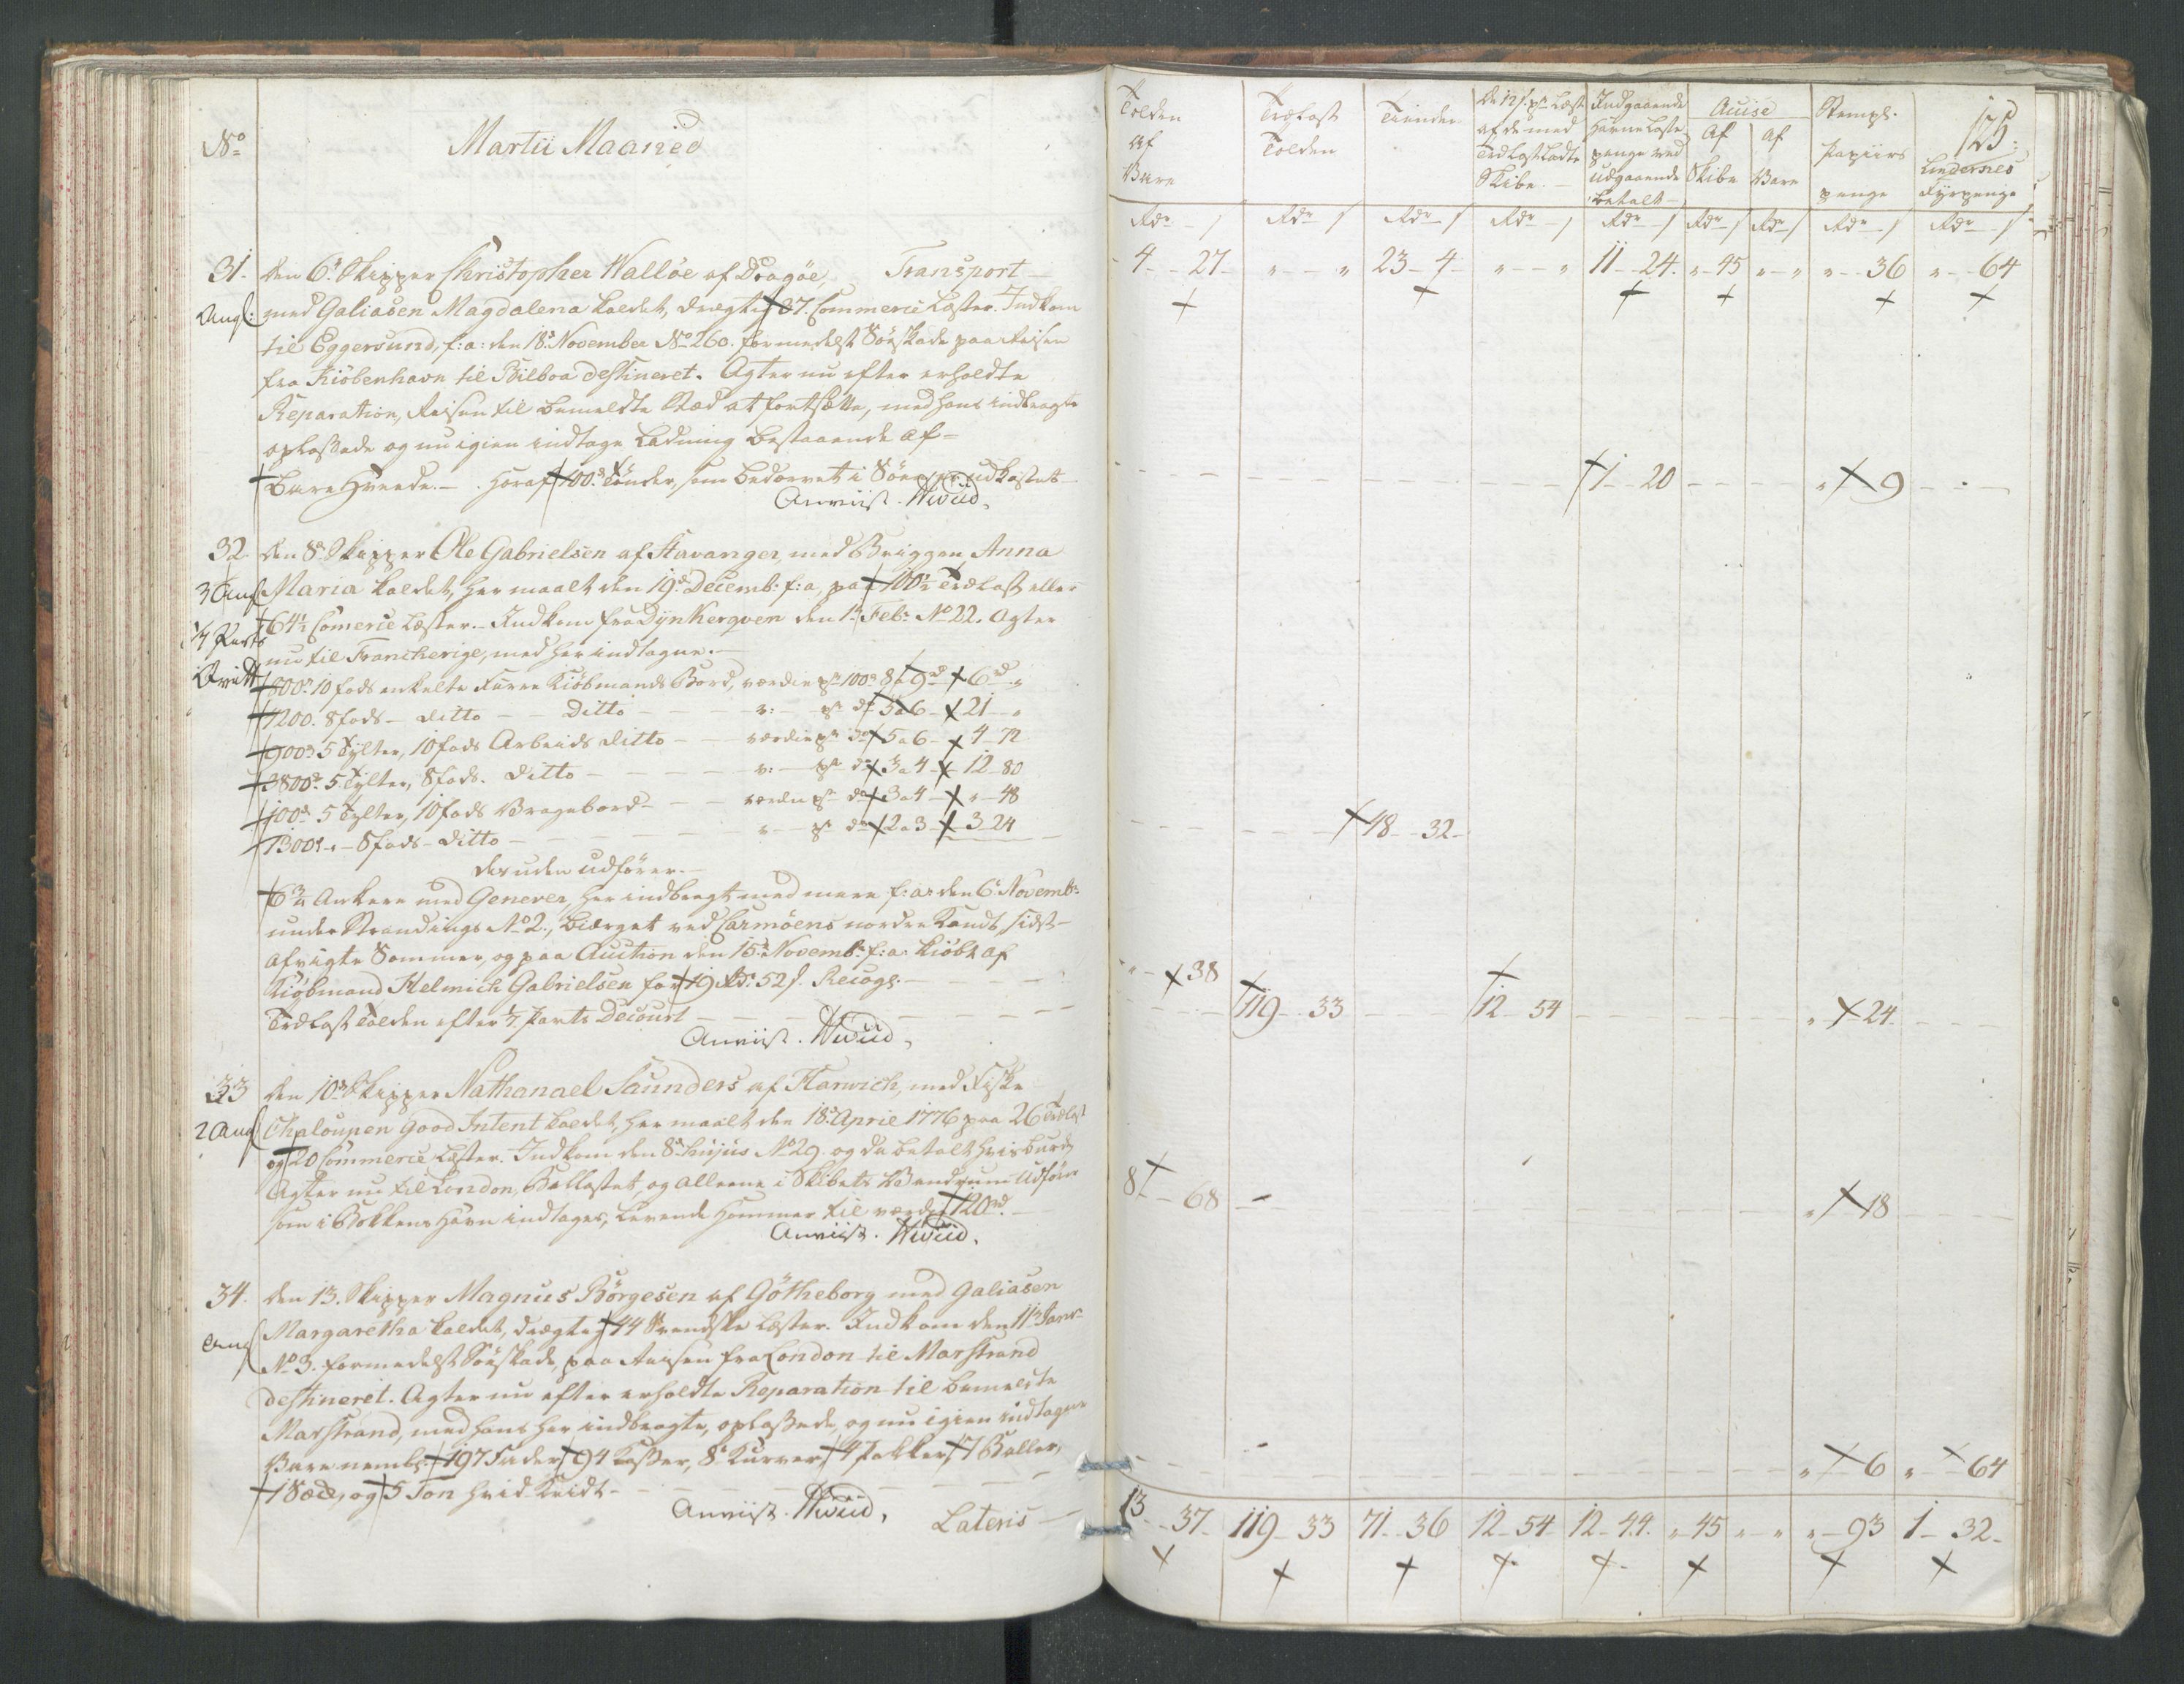 No
Martii Maaned
31. den 6te Skipper Christopher Walløe af Dragøe, Transport
Ang: med Galiasen Magdalena kaldet, drægtig 37. Commerce Læster. Indkom
til Eggersund, f: a: den 18de November No 260. formedelst Søeskade paa Reisen
fra Kiøbenhavn til Bilboa destineret. Agter nu efter erholdte
Reparation, Reisen til bemeldte Stæd at fortsætte, med hans indbragte
oplossede og nu igien indtagne Ladning bestaaende af
bare Hvede. - hvoraf 100de Tønder, som bedervet i Søen er udkastet
Anviist. Hviid.
32. den 8de Skipper Ole Gabrielsen af Stavanger, med Briggen Anna
3 Ang Maria kaldet, her maalt den 19de Decemb: f: a, paa 100½ Trælast eller
64½ Comerce Læster. Indkom fra Dynkerqven den 1te Febr: No 22. Agter
1/7 Parts
nu til Franckerige, med her indtagne.
Qvitt 800de 10 fods enkelte Furre Kiøbmands Bord, værdie pr 100de 8 a 9 rd 6 rd "
4200. 8 fods - ditto - - Ditto - v: - pr do 5 a 6 - 21 - "
900de 5 Tylter, 10 fods Arbeids ditto - - værdie pr do 5 a 6 - 4 - 72
3800de 5 Tylter, 8 fods. ditto - v: - pr do 3 a 4 - 12 - 80
100de 5 Tylter, 10 fods Vragebord - - værdie pr do 3 a 4 - " - 48
1300de - " - 8 fods - ditto - " - pr do 2 a 3 - 3 - 24
desuden udfører.
6¾ Ankere med Genever, her indbragt med mere f: a: den 6te Novemb:
under Strandings No 2., bierget ved Carmöens nordre Kandt, sidst-
afvigte Sommer, og paa Auction den 15de Novemb: f: a: kiøbt af
Kiøbmand Helmich Gabrielsen for 19 Rdr 52 s. Recogn.
Trælast Tolden efter 1/7 Parts Decourt
Anviist. Hviid.
33 den 10de Skipper Nathanael Saunders af Harwich, med Fiske
2 Ang Chaloupen Good Intent kaldet, her maalt den 18de April 1776 paa 26 Trælast
og 20 Commerce Læster. Indkom den 8de hujus No 29. og da betalt hvis burde
Agter nu til London, Ballastet, og alleene i Skibets Vandrum udfører
som i Kokkens Havn indtages, levende Hummer til værdie 120 rd.
Anviist. Hviid.
34. den 13. Skipper Magnus Börgesen af Götheborg med Galiasen
Ang Margaretha kaldet, drægtig 44 Svendske Læster. Indkom den 11te Janr:
No 3. formedelst Søeskade, paa Reisen fra London til Marstrand
destineret. Agter nu efter erholdte Reparation til bemelte
Marstrand, med hans her indbragte, oplossede, og nu igien indtagne
Vare nemlig: 197 Fade, 94 Kasser, 8 Kurver, 4 Pakker, 7 Baller,
1 Sæk, og 5 Ton hvid Kridt
Anviist. Hviid. Lateris
Tolden af Vare
Trælast Tolden
Tiender
De 12 s. pr Læst af de med Trælast ladte Skibe.
Indgaaende Havne Læstepenge ved udgaaende betalt
Acuise
Af Skibe
af Vare
Stempl. Papiirs penge
125:
Lindernes Fyrpenge
Rdr - s Rdr s Rdr - s Rdr - s Rdr - s Rdr s Rdr s Rdr - s Rdr - s
4 - 27 - " - - " 23 - 4 - " - - " 11 - 24. " - 45 " - " " - 36 " - 64
1 - 20 " - 9
48 - 32 -
" - 38
119 - 33 12 - 54 " - 24
8 - 68 " - 18
" - 6 " - 64
13 - 37 - 119 - 33 71 - 36 12 - 54 12 - 44. " - 45 " - " " - 93 1 - 32 -